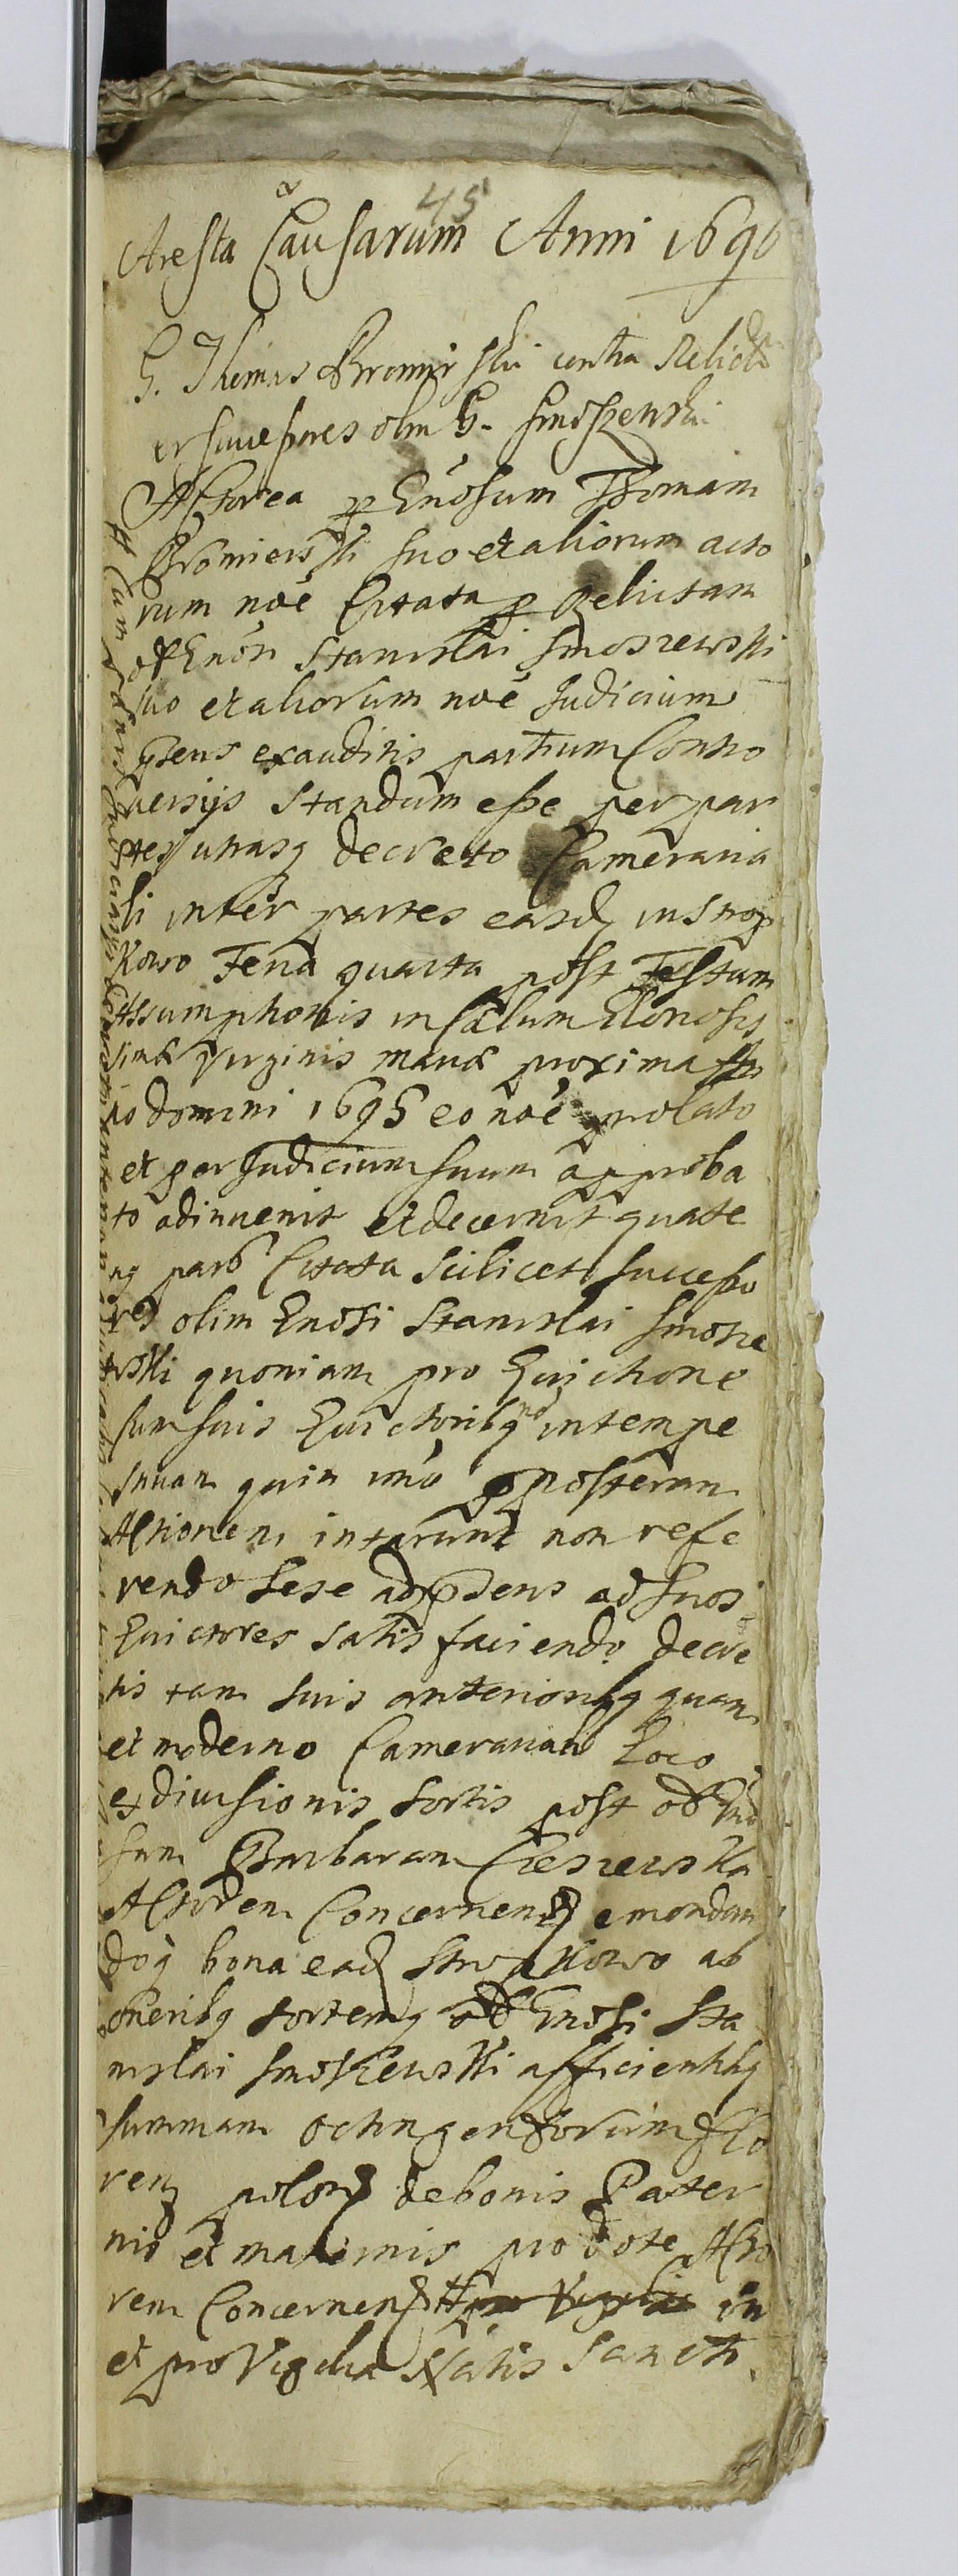 45
Aresta Causarum Anni 1696
G. Thomas Bromirski contra Relicta
et successores olim G. Smoszewski
Actorea p Gnosum Thomam
Bromierski suo et aliorum acto
rum noe Citata p Relictam
Stanislai Smoszewski
suo et aliorum noe Judicium
pñs exauditis partium Contro
versijs Standum esse per par
tes utrasq decreto Cameraria
li inter partes easd in Strop
kowo Feria quarta post Festum
Assumptionis in Cælum Glorosis
simæ Virginis Mariæ proxima An
no domini 1695 eo noe prolato
et per Judicium suum approba
to adinvenit et decernit quate
nq pars Citata scilicet successo
res olim Gnosi Stanislai Smosze
wski quoniam pro Evictione
cum suis Evictoribq intempe
stivam quin imo pposteram
Actionem intarunt non refe
rendo sese ad pñs ad suos
Evictores satis faciendo decre
tis tam suis anterioribq quam
et moderno Camerariali Loco
ex divisionis sortis post
sam Barbaram Cieszewska
Actorem Concernen emondan
doq bona ead Stropkowo ab
oneribq sortemq Gnosi Sta
nislai Smoszewski afficientibq
summam octingentorum flo
ren polon de bonis Pater
nis et maternis pro dote Acto
rem Concernen in
et pro Vigilia Natis Sancti